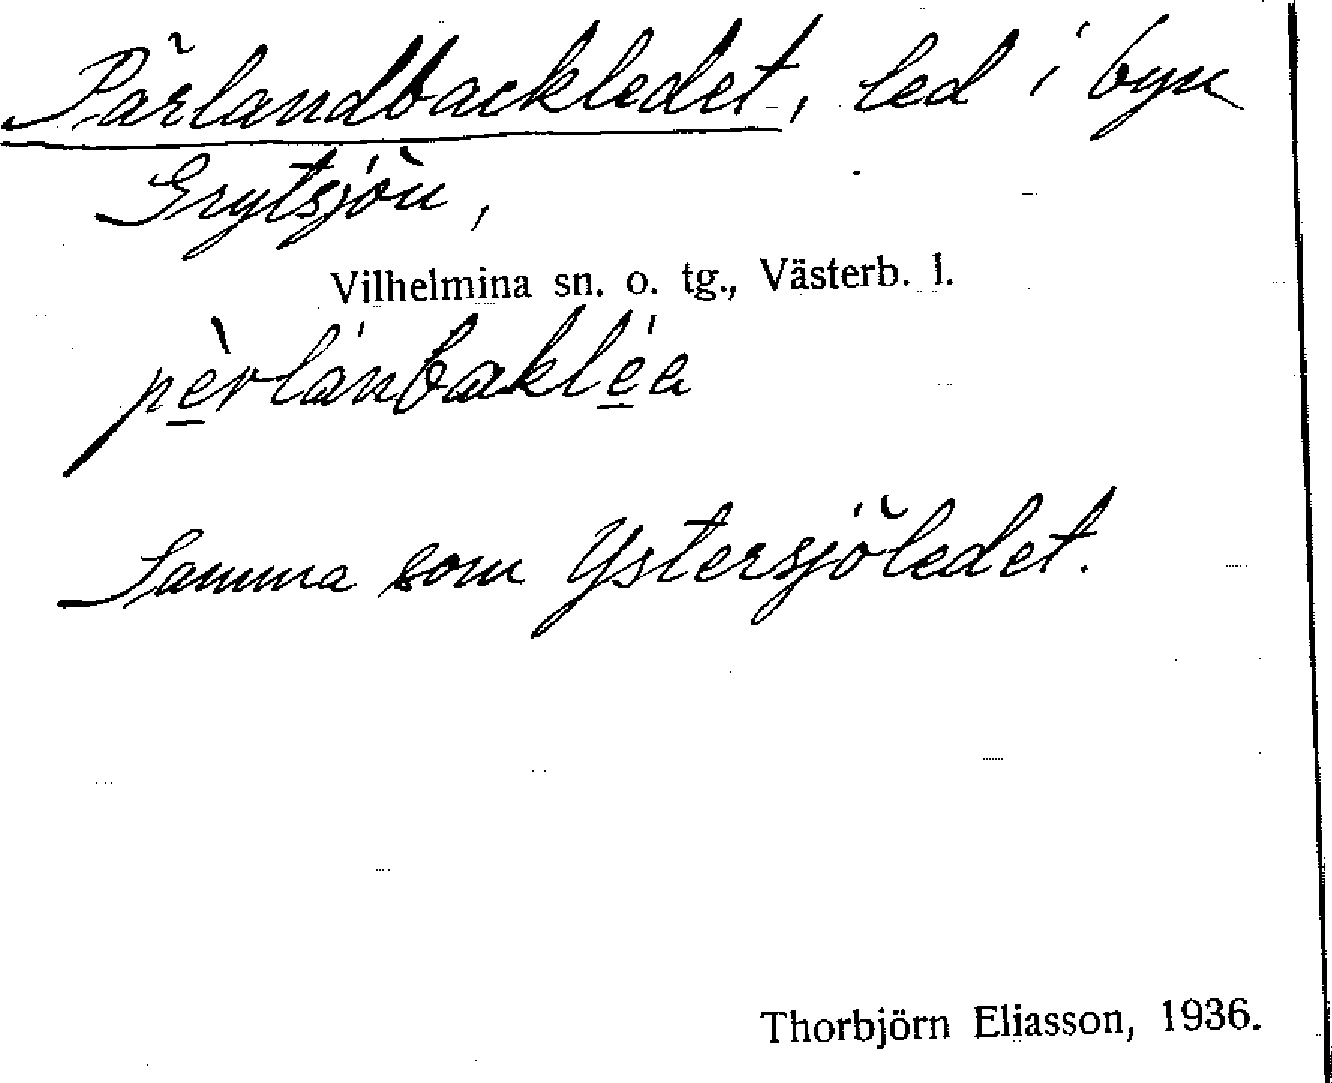 Pärlandbackledet, led i byn
Grytsjön,
Vilhelmina sn. o. tg., Västerb. l.
pèrlánbakléa
Samma som Ystersjöledet.
Thorbjörn Eliasson, 1936.